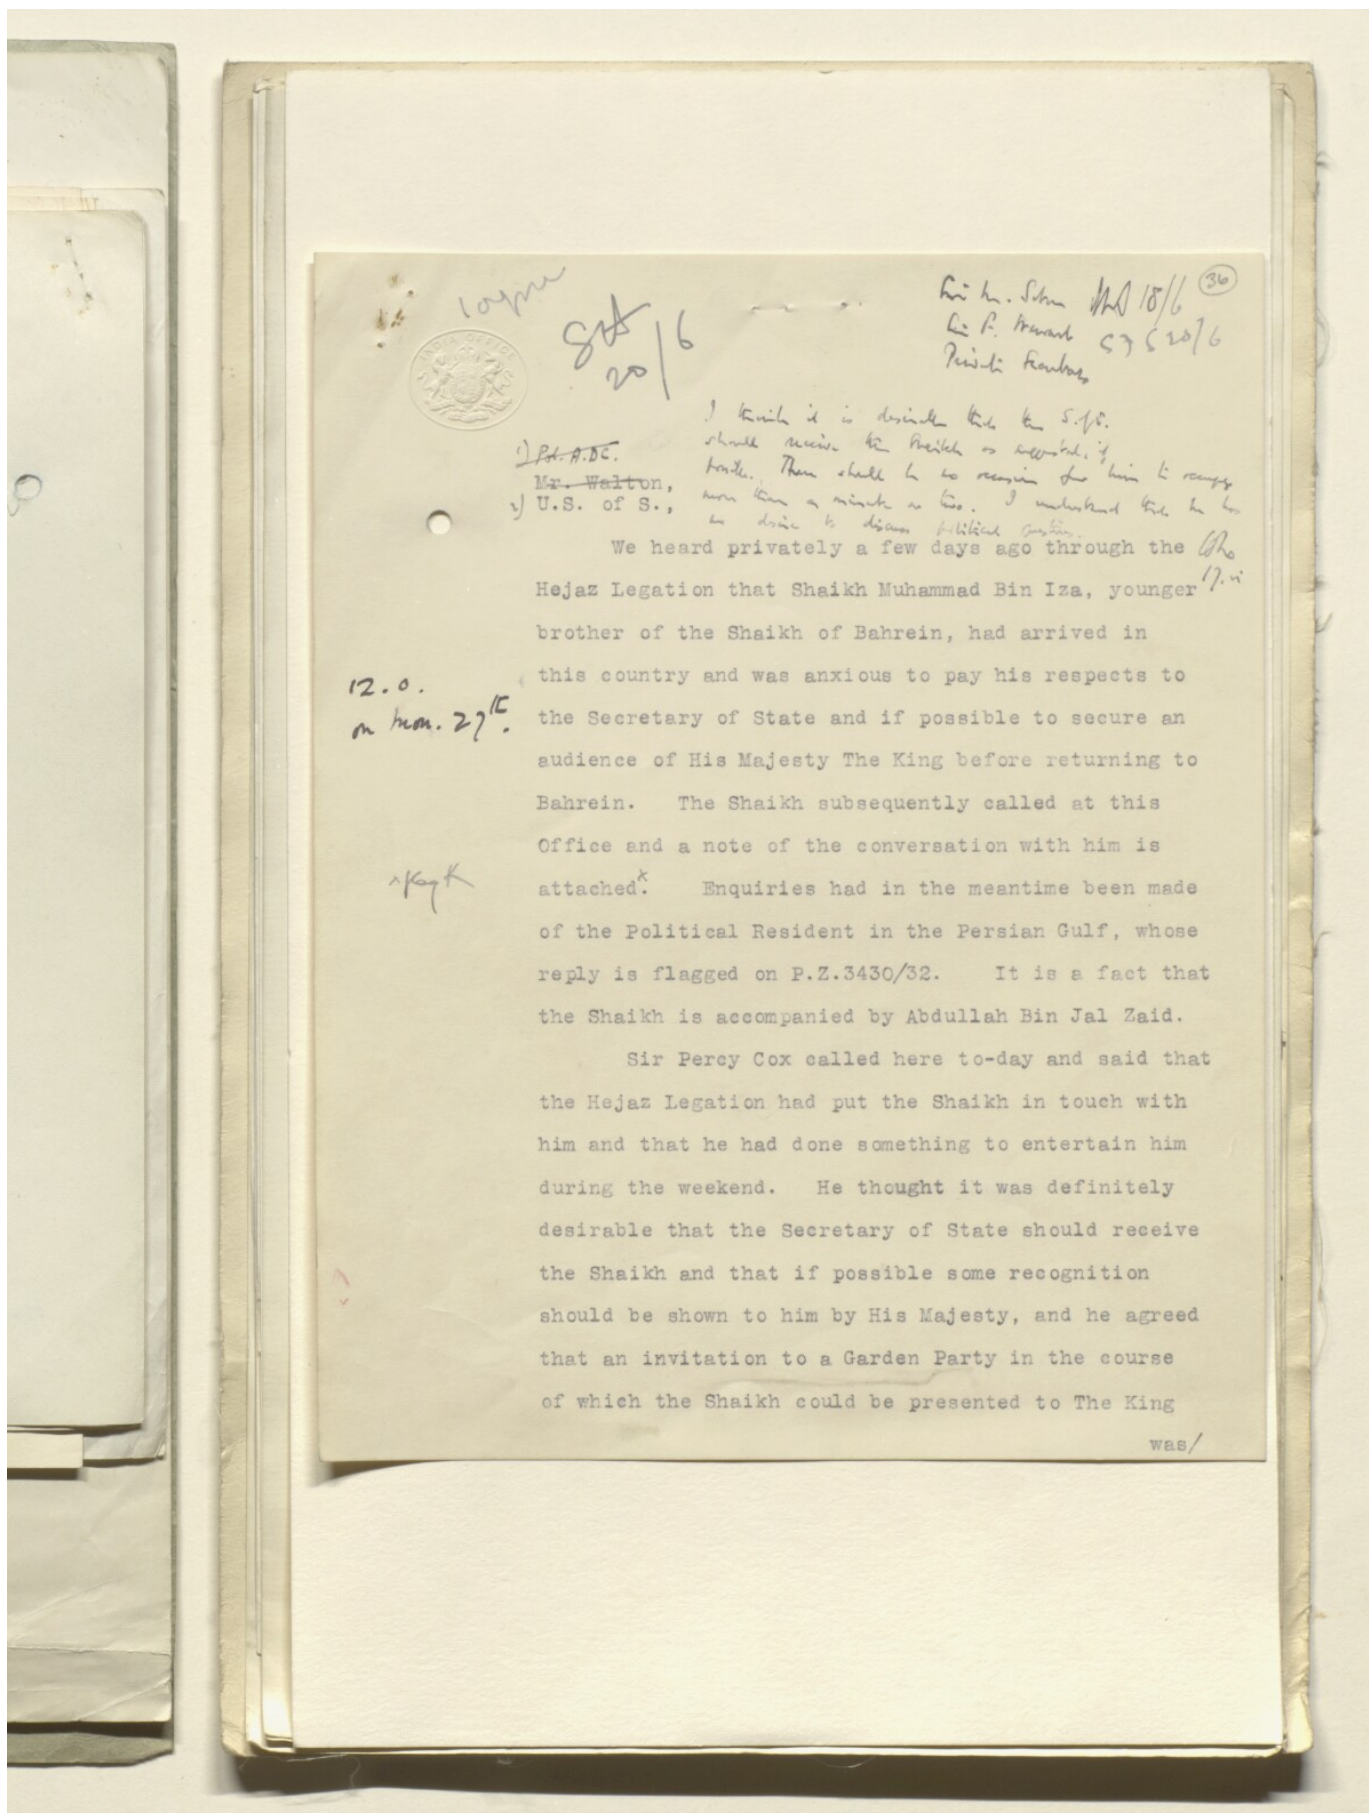 36
18/6
20/6
20/6
Private Secretary
INDIA OFFICE
I think it is desirable that the S. of S.
should receive the Sheikh as suggested, if
possible. There should be no occasion for him to occupy
more than a minute or two. I understand that he has
no desire to discuss political questions.
17.vi
1) Pol. A.D.C.
Mr. Walton,
2) U.S. of S.,
We heard privately a few days ago through the
Hejaz Legation that Shaikh Muhammad Bin Iza, younger
brother of the Shaikh of Bahrein, had arrived in
this country and was anxious to pay his respects to
12.0.
on Mon. 27th.
the Secretary of State and if possible to secure an
audience of His Majesty The King before returning to
Bahrein. The Shaikh subsequently called at this
Office and a note of the conversation with him is
x Flag K
attached.x Enquiries had in the meantime been made
of the Political Resident in the Persian Gulf, whose
reply is flagged on P.Z.3430/32. It is a fact that
the Shaikh is accompanied by Abdullah Bin Jal Zaid.
Sir Percy Cox called here to-day and said that
the Hejaz Legation had put the Shaikh in touch with
him and that he had done something to entertain him
during the weekend. He thought it was definitely
desirable that the Secretary of State should receive
the Shaikh and that if possible some recognition
should be shown to him by His Majesty, and he agreed
that an invitation to a Garden Party in the course
of which the Shaikh could be presented to The King
was/